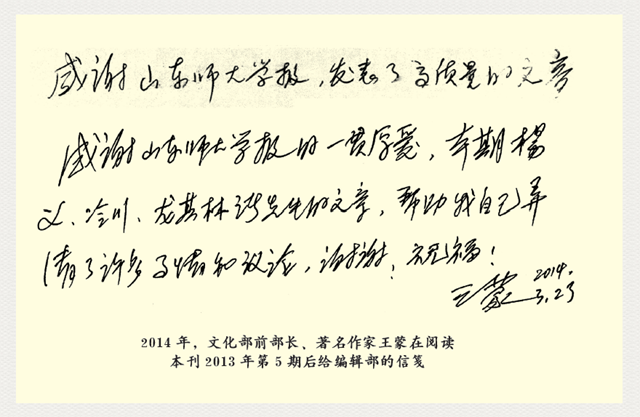 感谢山东师大学报，发表了高质量的文章
感谢山东师大学报的一贯厚爱，本期杨
义、冷川、龙其林诸先生的文章，帮助我自己弄
清了许多事情和议论，谢谢！祝福！
王蒙 2014.
3.23
2014年，文化部前部长、著名作家王蒙在阅读
本刊2013年第5期后给编辑部的信笺